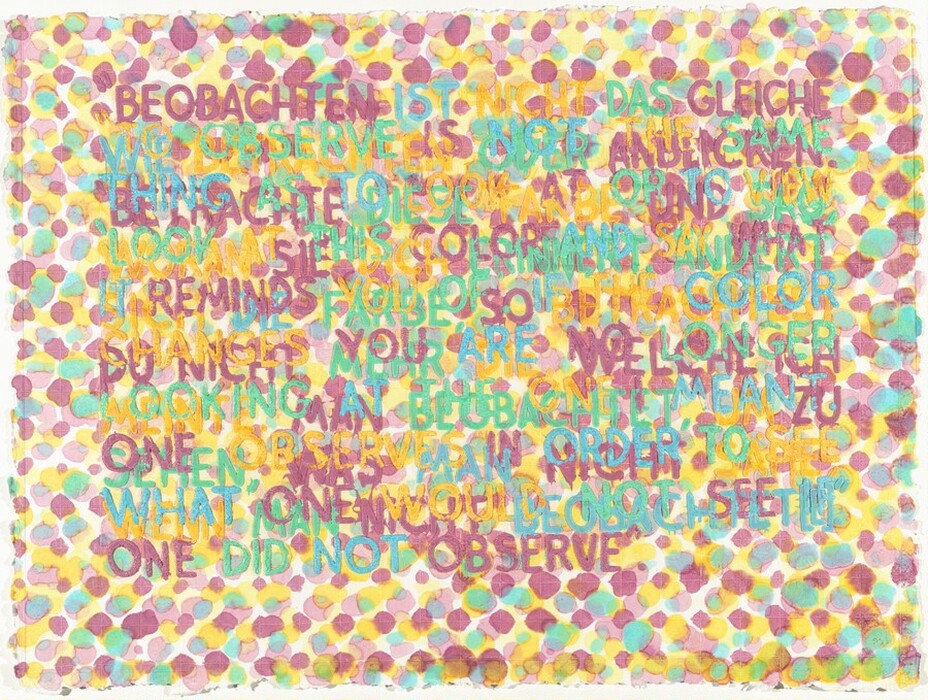 "BEOBACHTEN IST NICHT DAS GLEICHE
TO OBSERVE IS NOT THE SAME
ODER ANBLICKEN.
THING AS TO LOOK AT OR TO VIEW
BETRACHTE DIESE FARBE UND SAG,
'LOOK AT THIS COLOR AND SAY WHAT
SIE DICH ERINNERT ÄNDERT
IT REMINDS YOU OF' IF THE COLOR
DIE FARBE, SO
CHANGES YOU ARE NO LONGER
DU NICHT MEHR DIE WELCHE ICH
LOOKING AT THE ONE I MEANT
MAN BEOBACHTET, UM ZU
ONE OBSERVES IN ORDER TO SEE
SEHEN, WAS MAN NICHT
WHAT ONE WOULD NOT SEE IF
MAN NICHT BEOBACHTET
ONE DID NOT OBSERVE